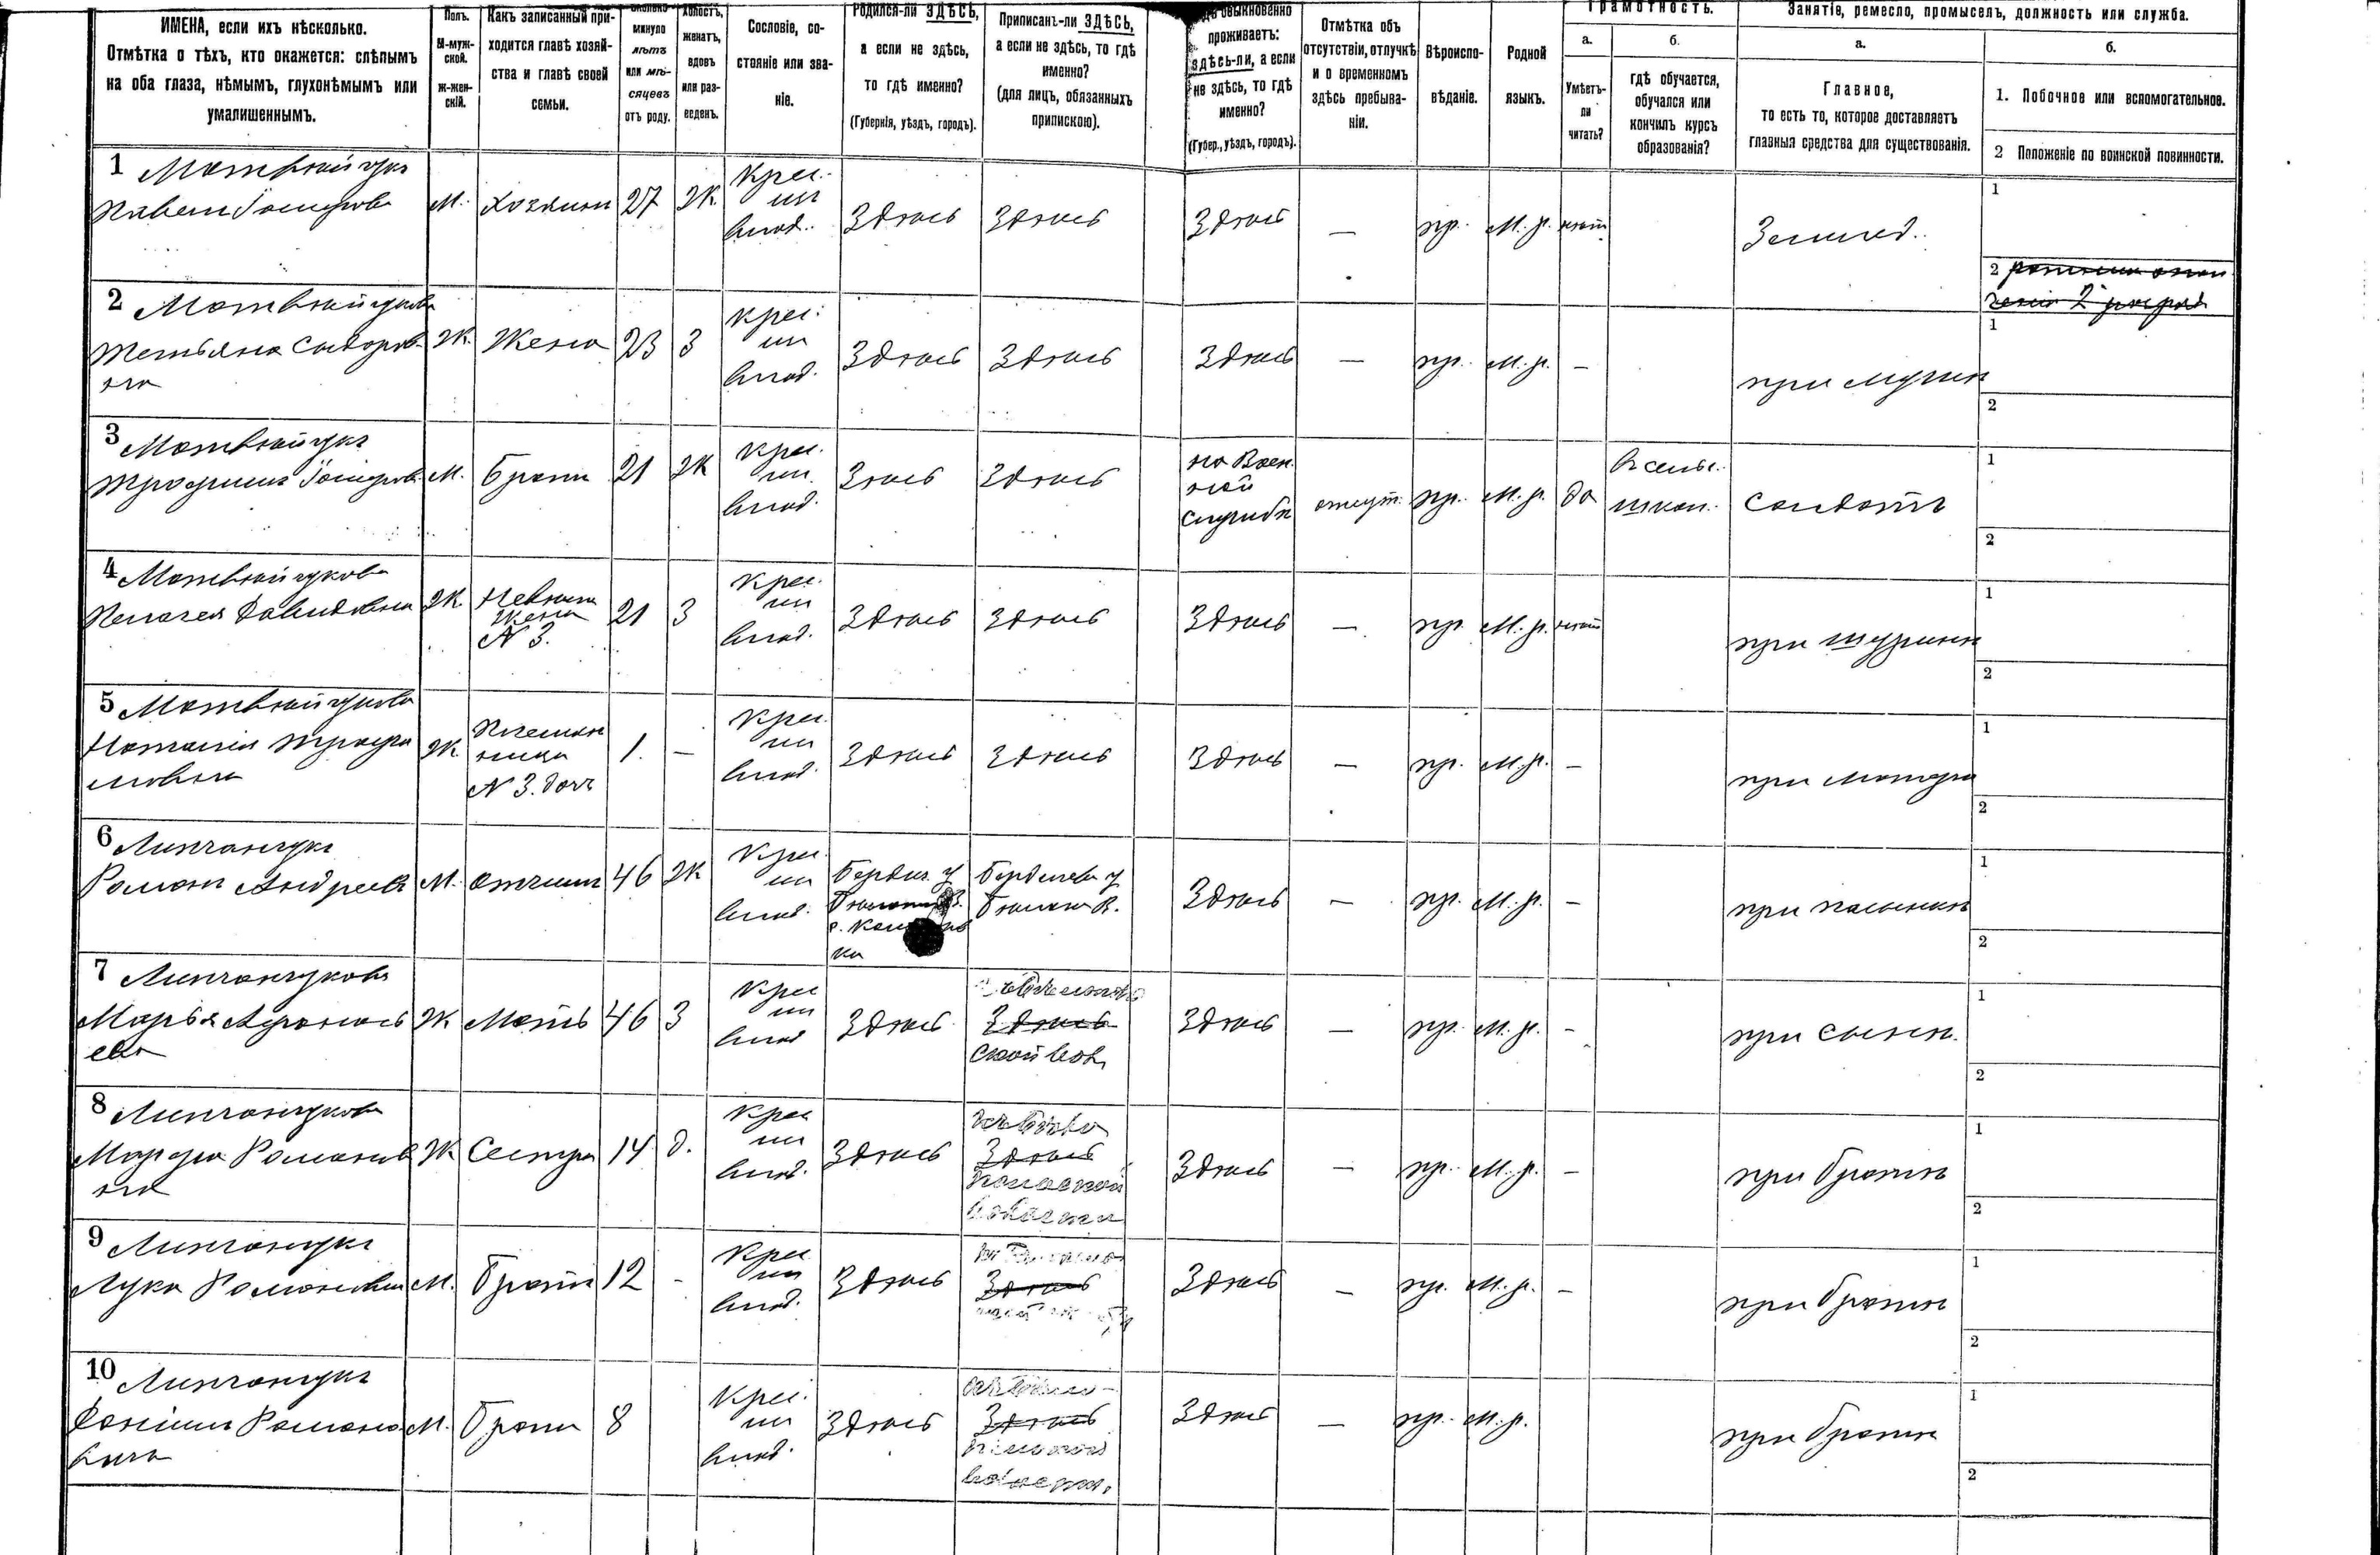 ИМЕНА, если ихъ нѣсколько.
Отмѣтка о тѣхъ, кто окажется: слѣпымъ
на оба глаза, нѣмымъ, глухонѣмымъ или
умалишеннымъ.
Полъ.
М-муж-
ской.
ж-жен-
скій.
Какъ записанный при-
ходится главѣ хозяй-
ства и главѣ своей
семьи.
минуло
лѣтъ
или мѣ-
сяцевъ
отъ роду.
Холостъ,
женатъ,
вдовъ
или раз-
веденъ.
Сословіе, со-
стояніе или зва-
ніе.
Родился-ли ЗДѢСЬ,
а если не здѣсь,
то гдѣ именно?
(Губернія, уѣздъ, городъ).
Приписанъ-ли ЗДѢСЬ,
а если не здѣсь, то гдѣ
именно?
(для лицъ, обязанныхъ
припискою).
обыкновенно
проживаетъ:
здѣсь-ли, а если
не здѣсь, то гдѣ
именно?
(Губер., уѣздъ, городъ).
Отмѣтка объ
отсутствіи, отлучкѣ
и о временномъ
здѣсь пребыва-
ніи.
Вѣроиспо-
вѣданіе.
Родной
языкъ.
Грамотность.
а.
Умѣетъ-
ли
читать?
б.
гдѣ обучается,
обучался или
кончилъ курсъ
образованія?
Занятіе, ремесло, промыселъ, должность или служба.
а.
Главное,
то есть то, которое доставляетъ
главныя средства для существованія.
б.
1. Побочное или вспомогательное.
2 Положеніе по воинской повинности.
1 Матвѣйчукъ
Павелъ
М. Хозяинъ 27 Ж Крес.
изъ
влад. Здѣсь Здѣсь Здѣсь — пр. М. р. нѣтъ Землед.
1
2
2 Матвѣйчукова
Татьяна Сидоров-
на
Ж. Жена 23 З Крес.
изъ
влад. Здѣсь Здѣсь Здѣсь — пр. М. р. — при мужѣ
1
2
3 Матвѣйчукъ
Трофимъ
М. Братъ 21 Ж Крес.
изъ
влад. Здѣсь на Воен-
ной
службѣ отсут. пр. М. р. да
В сельс.
школ. солдатъ
1
2
4 Матвѣйчукова
Пелагея Давидовна
Ж. Невѣстка
жена
N 3. 21 З Крес.
изъ
влад. Здѣсь Здѣсь Здѣсь — пр. М. р. нѣтъ при шуринѣ
1
2
5 Матвѣйчукова
Наталія Трофи
мовна
Ж. Племян
ница
N 3. дочь 1. — Крес.
изъ
влад. Здѣсь Здѣсь Здѣсь — пр. М. р. — при матери
1
2
6 Липчанчукъ
Романъ Андреевъ
М. отчимъ 46 Ж Крес.
изъ
влад. Бердич. у Бердичев у
Здѣсь — пр. М. р. — при пасынкѣ
1
2
7 Липчанчукова
Марья Афанась
ева
Ж Мать 46 З Крес
изъ
влад Здѣсь Здѣсь
ской вол. Здѣсь — пр. М. р. - при сынѣ.
1
2
8 Липчанчукова
Марфа Романов
на
Ж Сестра 14 д. Крес
изъ
влад. Здѣсь Здѣсь Здѣсь — пр. М. р. — при братѣ
1
2
9 Липчанчукъ
Лука Романовъ
М. Братъ 12 - Крес
изъ
влад. Здѣсь Здѣсь Здѣсь — пр. М. р. — при братѣ
1
2
10 Липчанчукъ
Романо
вичъ
М. Братъ 8 Крес.
изъ
влад. Здѣсь Здѣсь Здѣсь — пр. М. р. при братѣ
1
2